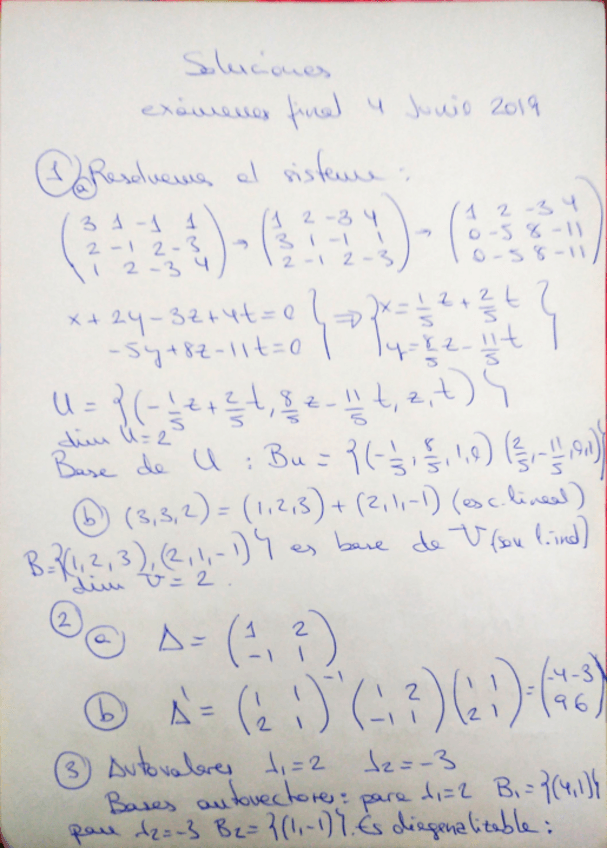 Soluciones
exámenes final 4 Junio 2019
① a) Resolvemos el sistema:
( 3 1 -1 1 ) → ( 1 2 -3 4 ) → ( 1 2 -3 4 )
( 2 -1 2 -3 ) ( 3 1 -1 1 ) ( 0 -5 8 -11 )
( 1 2 -3 4 ) ( 2 -1 2 -3 ) ( 0 -5 8 -11 )
x+2y-3z+4t=0 } ⇒ { x=1/5 z + 2/5 t }
-5y+8z-11t=0 } { y=8/5 z - 11/5 t }
U = {(-1/5 z + 2/5 t, 8/5 z - 11/5 t, z, t)}
dim U=2
Base de U : Bu = {(-1/5, 8/5, 1, 0) (2/5, -11/5, 0, 1)}
b) (3,3,2) = (1,2,3) + (2,1,-1) (es c. lineal)
B={(1,2,3),(2,1,-1)} es base de V (son l. ind)
dim V = 2.
②
a) A = ( 1 2 )
( -1 1 )
b) A' = ( 1 1 )⁻¹ ( 1 2 ) ( 1 1 ) = ( -4 -3 )
( 2 1 ) ( -1 1 ) ( 2 1 ) ( 9 6 )
③ Autovalores λ₁=2 λ₂=-3
Bases autovectores: para λ₁=2 B₁={(4,1)}
para λ₂=-3 B₂={(1,-1)}. Es diagonalizable: